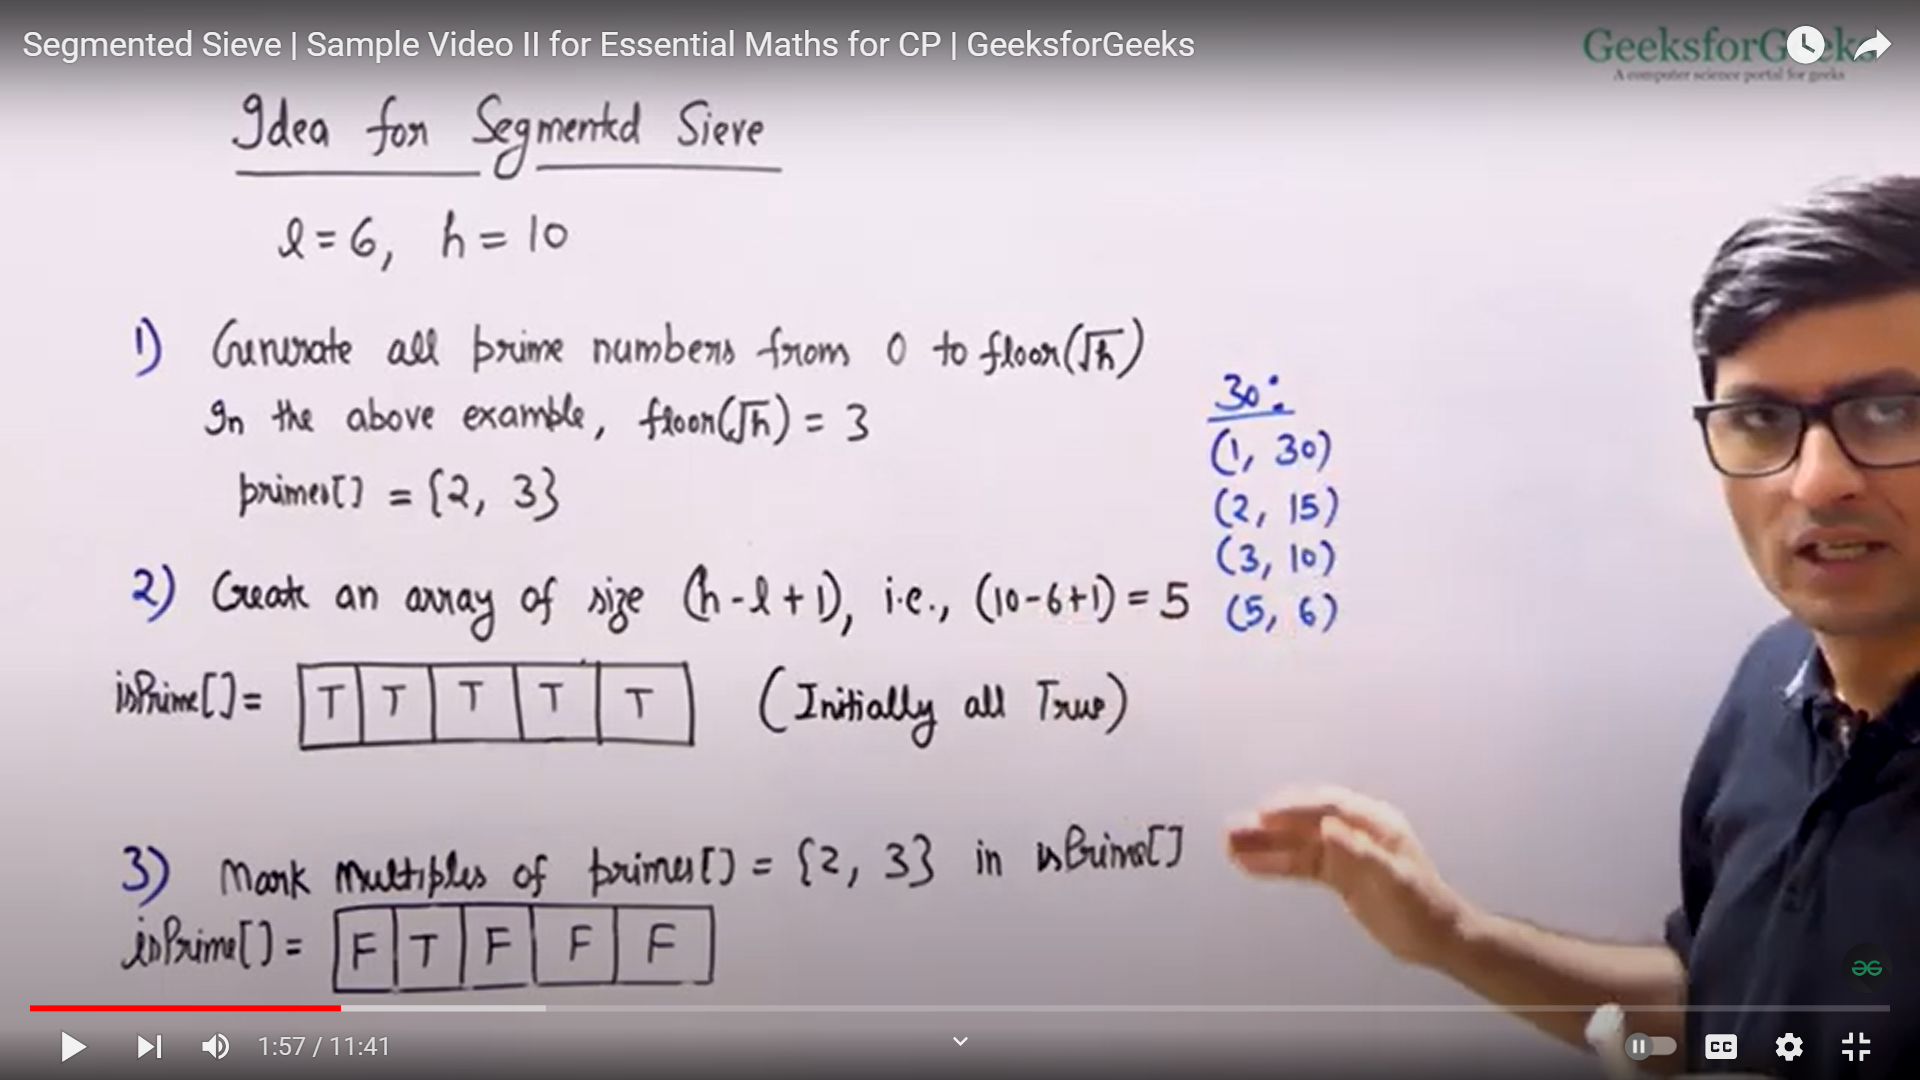 Segmented Sieve | Sample Video II for Essential Maths for CP | GeeksforGeeks
GeeksforGeeks
A computer science portal for geeks
Idea for Segmented Sieve
l = 6, h = 10
1) Generate all prime numbers from 0 to floor(√h)
In the above example, floor(√h) = 3
primes[] = {2, 3}
30:
(1, 30)
(2, 15)
(3, 10)
(5, 6)
2) Create an array of size (h - l + 1), i.e., (10 - 6 + 1) = 5
isPrime[] = T T T T T (Initially all True)
3) Mark multiples of primes[] = {2, 3} in isPrime[]
isPrime[] = F T F F F
1:57 / 11:41
CC